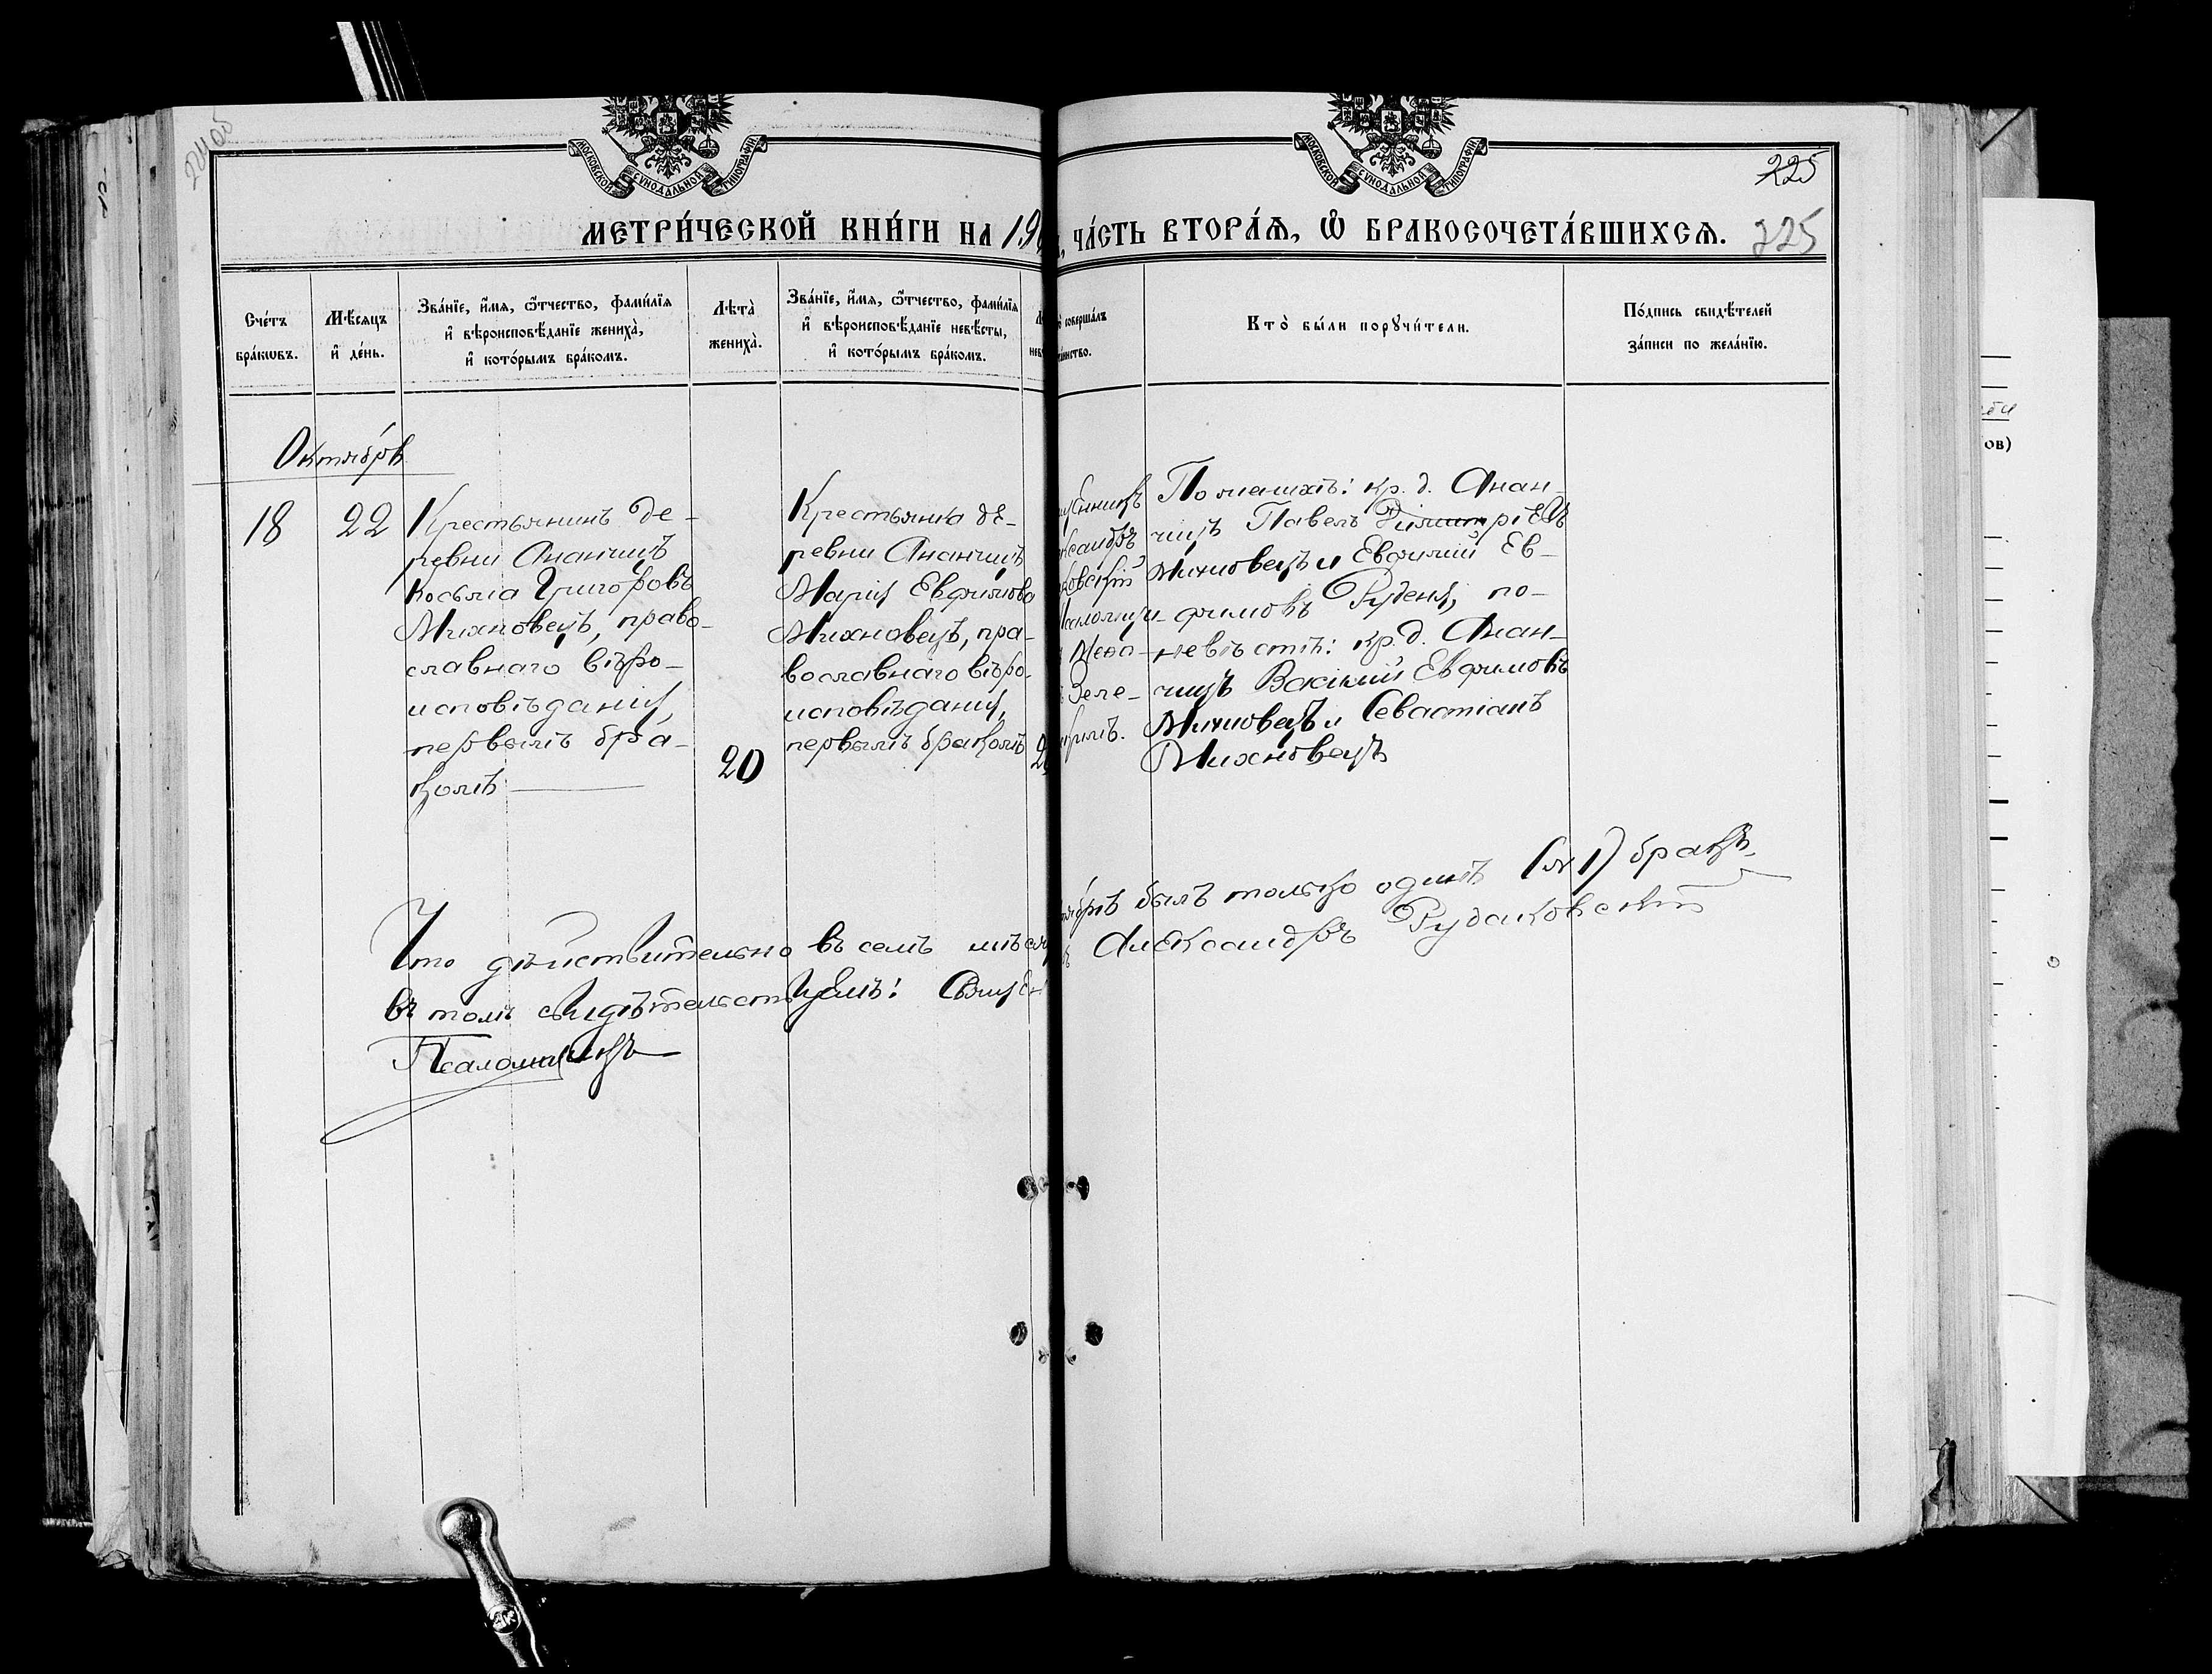 МОСКОВСКОЙ СУНОДАЛЬНОЙ ТИПОГРАФІИ
МОСКОВСКОЙ СУНОДАЛЬНОЙ ТИПОГРАФІИ
225
МЕТРИ́ЧЕСКОЙ КНИ́ГИ НА 19
ЧА́СТЬ ВТОРА́Ѧ, Ѽ БРАКОСОЧЕТА́ВШИХСѦ. 225
Сче́тъ бра́кѡвъ.
Мѣ́сяцъ и҆ де́нь.
Зва́нїе, и҆́мѧ, ѻ҆́тчество, фами́лїѧ
и҆ вѣроисповѣ́данїе жениха̀,
и҆ кото́рымъ бра́комъ.
Лѣта̀ жениха̀.
Зва́нїе, и҆́мѧ, ѻ҆́тчество, фами́лїѧ
и҆ вѣроисповѣ́данїе невѣ́сты,
и҆ кото́рымъ бра́комъ.
соверша́лъ
Кто̀ бы́ли порꙋчи́тели.
По́дпись свидѣ́телей
за́писи по жела́нїю.
Октябрь
18
22
Крестьянинъ де-
ревни Ананчицъ
Косьма Григоровъ
Михновецъ, право-
славнаго вѣро-
исповѣданія,
первымъ бра-
комъ
20
Крестьянка де-
ревни Ананчицъ
Марія Евфимова
Михновецъ, пра-
вославнаго вѣро-
исповѣданія,
первымъ бракомъ
По женихѣ: кр. д. Анан-
чицъ Павелъ Димитріевъ
Михновецъ и Евфимій Ев-
фимовъ Руденя, по
невѣстѣ: кр. д. Анан-
чицъ Василій Евфимовъ
Михновецъ и Севастіанъ
Михновецъ
Что дѣйствительно въ семъ мѣся
ябрѣ былъ только одинъ (№ 1) бракъ.
въ томъ свидѣтельствуемъ: Священ
ъ Александръ Рудаковскій
Псаломщикъ